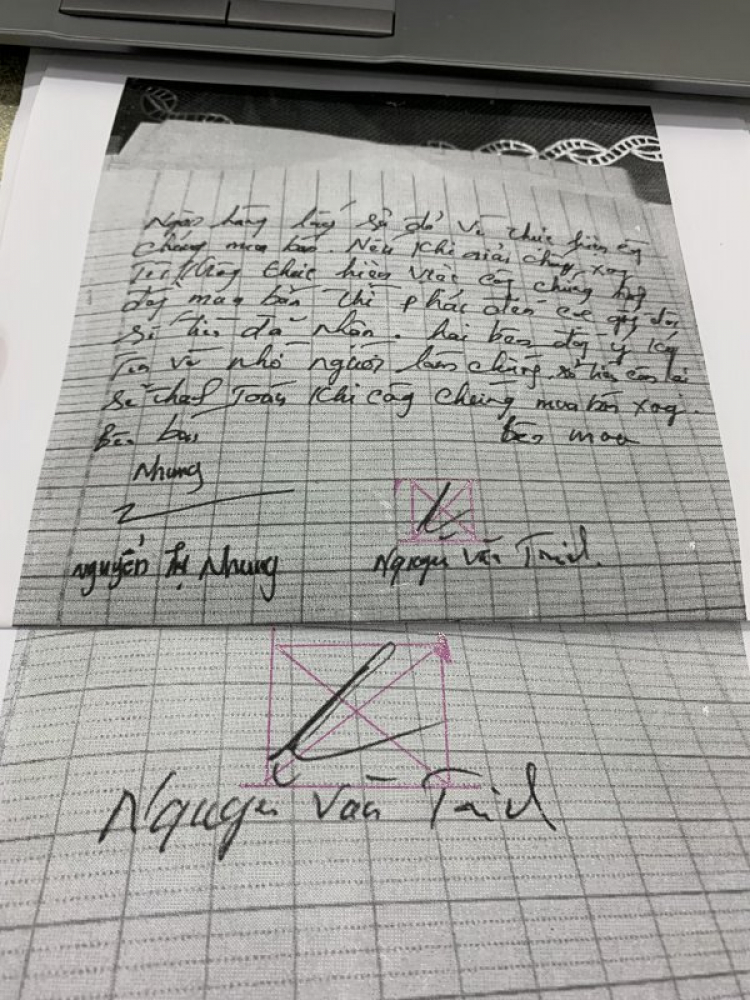 Ngân hàng lấy sổ đỏ về thực hiện công
chứng mua bán. Nếu khi giải chấp xong
Tôi không thực hiện việc công chứng hợp
đồng mua bán thì phải đền cọc gấp đôi
số tiền đã nhận. hai bên đồng ý ký
Tên và nhờ người làm chứng. số tiền còn lại
sẽ thanh Toán khi công chứng mua bán xong.
Bên bán bên mua
Nhung
Nguyễn Thị Nhung Nguyễn Văn
Nguyễn Văn